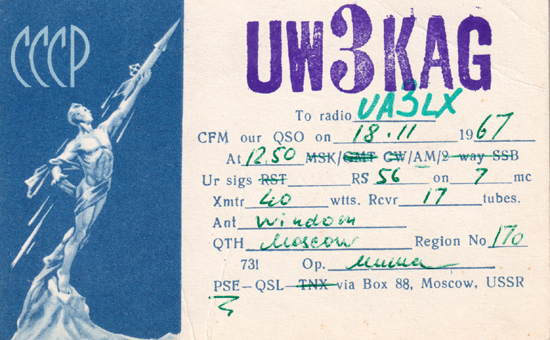 СССР
UW3KAG
To radio UA3LX
CFM our QSO on 18.11 1967
At 12.50 MSK/GMT CW/AM/2 way SSB
Ur sigs RST RS 56 on 7 mc
Xmtr 40 wtts. Rcvr 17 tubes.
Ant Windom
QTH Moscow Region No 170
731 Op. Миша
PSE—QSL TNX via Box 88, Moscow, USSR
73